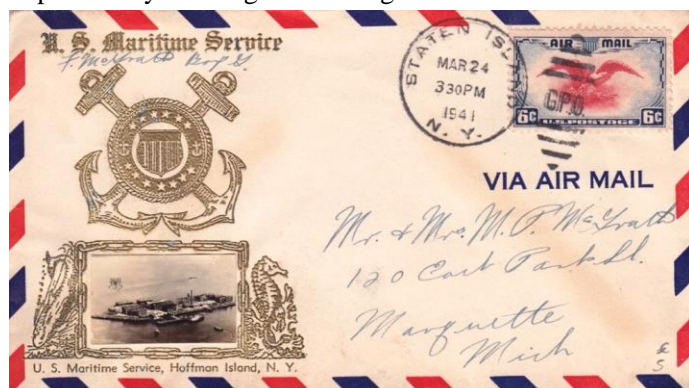 U. S. Maritime Service
F. McGrath
STATEN ISLAND
MAR 24
3 30 PM
1941
N. Y.
AIR MAIL
G.P.O.
6c U.S. POSTAGE 6c
VIA AIR MAIL
Mr. & Mrs. M. P. McGrath
120 East Park St.
Marquette
Mich
U. S. Maritime Service, Hoffman Island, N. Y.